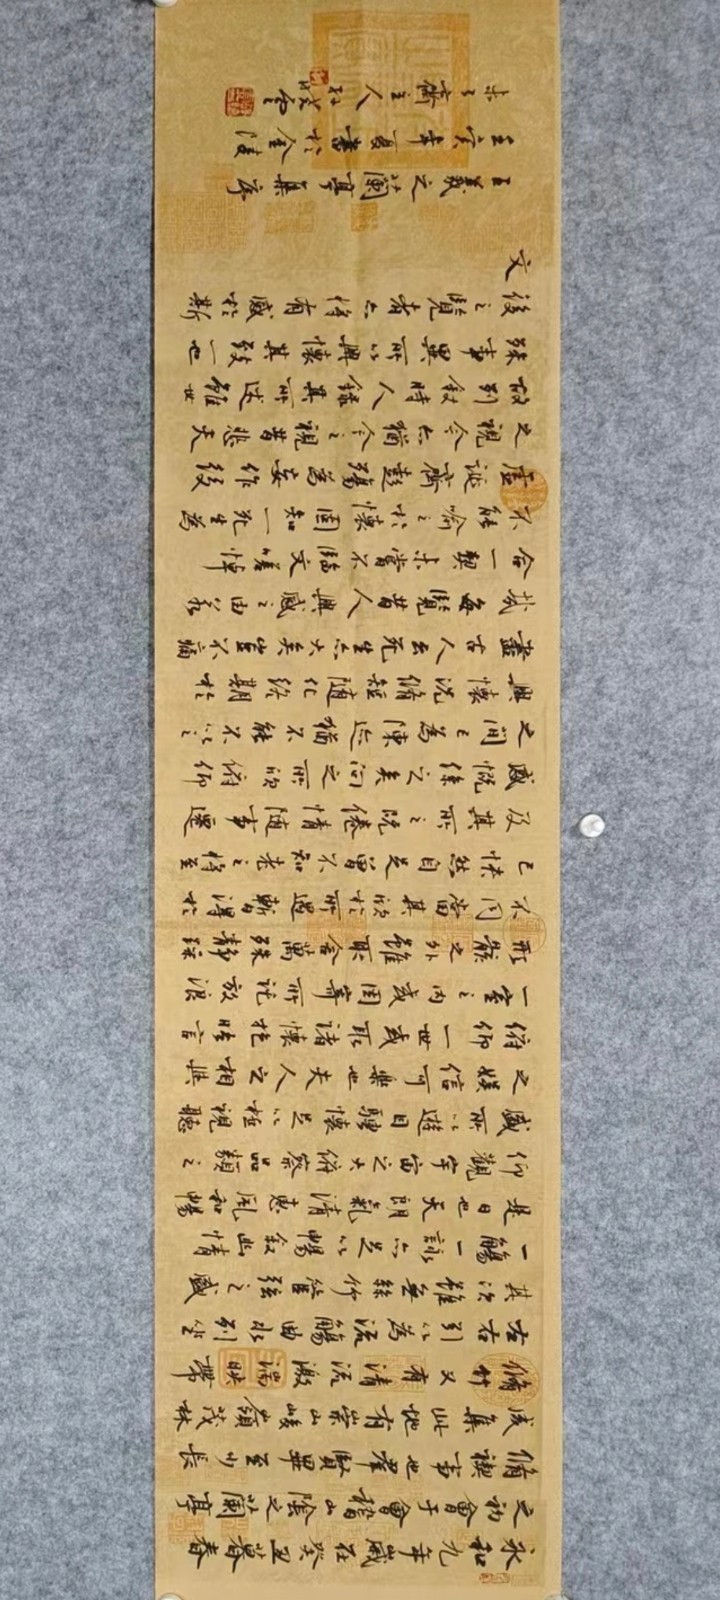 永和九年歲在癸丑暮春
之初會于會稽山陰之蘭亭
脩禊事也群賢畢至少長
咸集此地有崇山峻嶺茂林
脩竹又有清流激湍映帶
左右引以為流觴曲水列坐
其次雖無絲竹管弦之盛
一觴一詠亦足以暢敘幽情
是日也天朗氣清惠風和暢
仰觀宇宙之大俯察品類之
盛所以遊目騁懷足以極視聽
之娛信可樂也夫人之相與
俯仰一世或取諸懷抱晤言
一室之內或因寄所託放浪
形骸之外雖取舍萬殊靜躁
不同當其欣於所遇暫得於
己怏然自足曾不知老之將至
及其所之既倦情隨事遷
感慨係之矣向之所欣俯仰
之間已為陳迹猶不能不以之
興懷況脩短隨化終期於
盡古人云死生亦大矣豈不痛
哉每覽昔人興感之由若
合一契未嘗不臨文嗟悼
不能喻之於懷固知一死生為
虛誕齊彭殤為妄作後
之視今亦猶今之視昔悲夫
故列敘時人錄其所述雖世
殊事異所以興懷其致一也
後之覽者亦將有感於斯
文
王羲之蘭亭集序
壬寅年夏書於金陵
齋主人